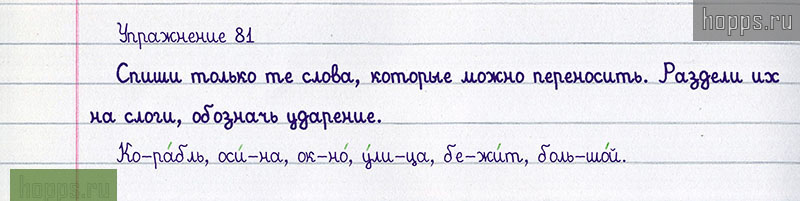 hopps.ru
Упражнение 81
Спиши только те слова, которые можно переносить. Раздели их
на слоги, обозначь ударение.
Ко-ра́бль, оси́-на, ок-но́, у́ли-ца, бе-жи́т, боль-шо́й.
hopps.ru